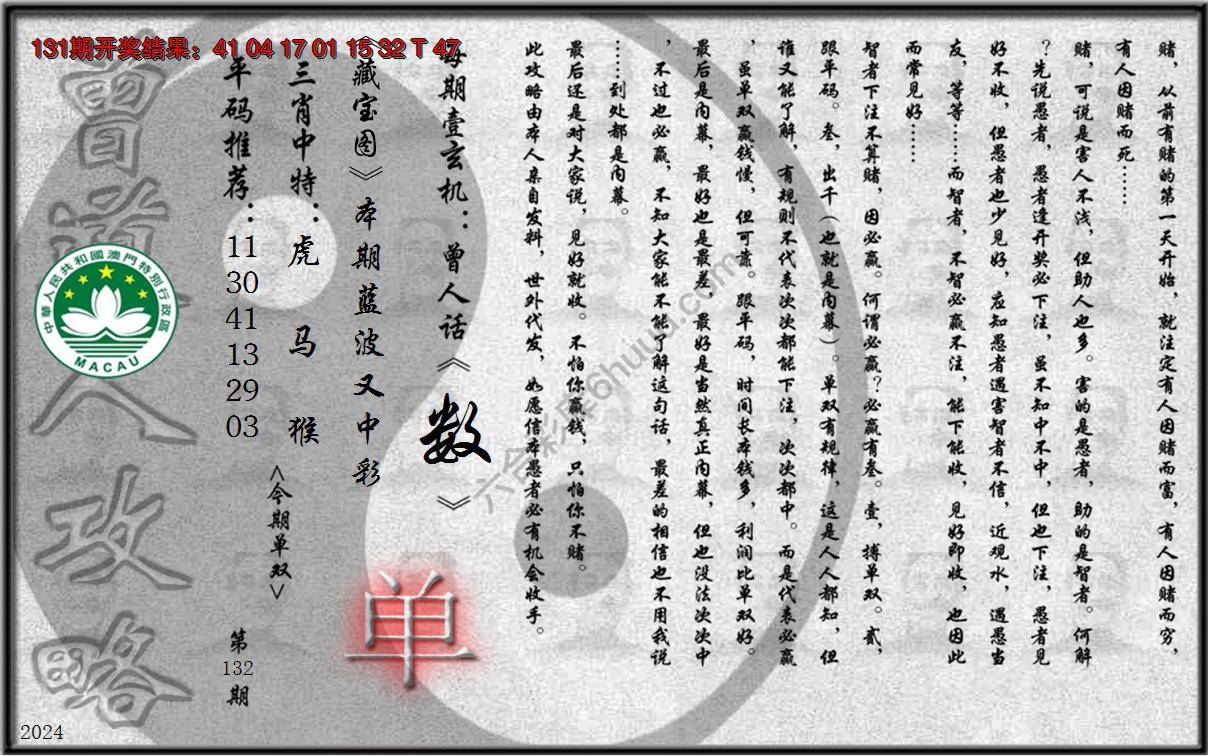 131期开奖结果：41 04 17 01 15 32 T 47
赌，从前有赌的第一天开始，就注定有人因赌而富，有人因赌而穷，
有人因赌而死……
赌，可说是害人不浅，但助人也多。害的是愚者，助的是智者。何解
？先说愚者，愚者逢开奖必下注，虽不知中不中，但也下注，愚者见
好不收，但愚者也少见好，应知愚者遇害智者不信，近观水，遇愚当
友，等等……而智者，不智必赢不注，能下能收，见好即收，也因此
而常见好……
智者下注不算赌，因必赢。何谓必赢？必赢有叁。壹，搏单双。贰，
跟平码。叁，出千（也就是内幕）。单双有规律，这是人人都知，但
谁又能了解，有规则不代表次次都能下注，次次都中。而是代表必赢
，虽单双赢钱慢，但可靠。跟平码，时间长本钱多，利润比单双好。
最后是内幕，最好也是最差，最好是当然真正内幕，但也没法次次中
，不过也必赢，不知大家能不能了解这句话，最差的相信也不用我说
……到处都是内幕。
最后还是对大家说，见好就收。不怕你赢钱，只怕你不赌。
此攻略由本人亲自发料，世外代发，如愿信本愚者必有机会收手。
每期壹玄机：曾人话《数》
《藏宝图》本期蓝波又中彩
三肖中特：虎 马 猴
<今期单双>
单
平码推荐：11 30 41 13 29 03
第132期
曾道人攻略
中華人民共和國澳門特別行政區
MACAU
六合彩库6huuu.com
2024